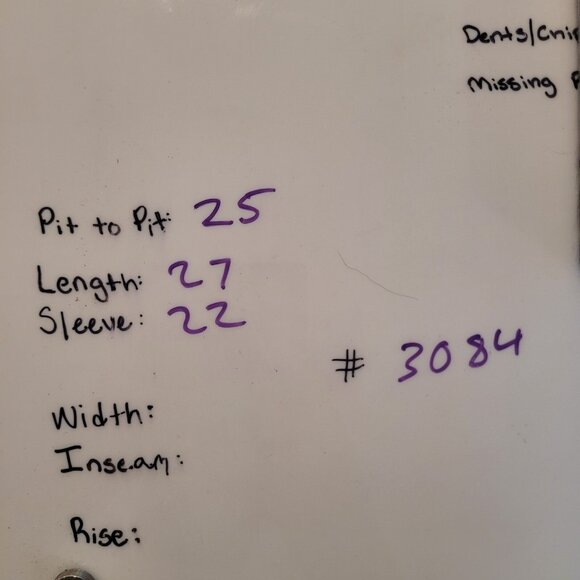 Dents/
Missing
Pit to Pit: 25
Length: 27
Sleeve: 22
# 3084
Width:
Inseam:
Rise: